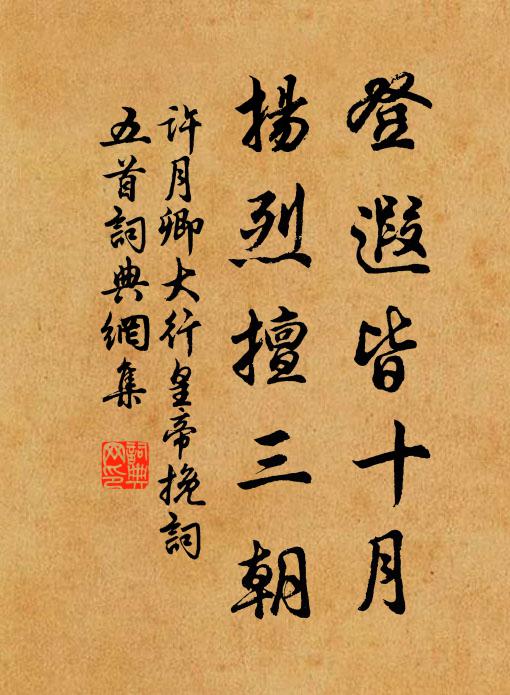 登遐皆十月
揚烈擅三朝
許月卿大行皇帝挽詞
五首詞典網集
詞典
网印